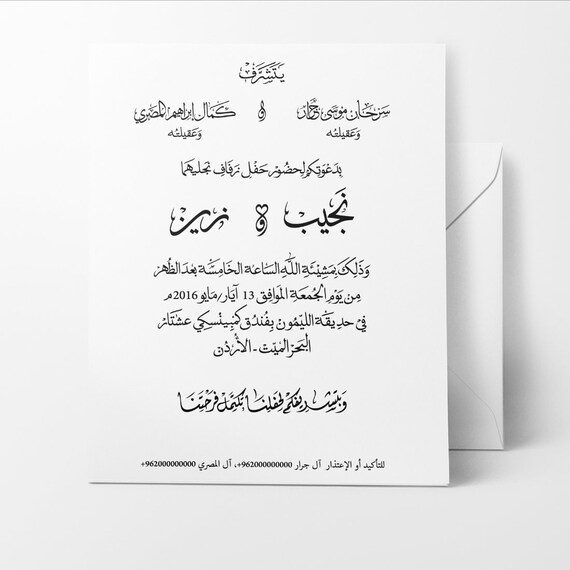 يَتَشَرَّفُ
سَرْحَان مُوسَى جرَّار و كَمَال إبراهيم المصري
وَعَقيلته وَعَقيلته
بِدَعْوَتِكم لِحضُور حَفْل زفَاف نجليهما
نَجيب و نرين
وَذَلِكَ بمَشِيئَةِ اللَّه السَاعَة الخَامِسَة بعَد الظُهر
مِن يَوْمِ الجُمعَة المَوَافِق 13 آيَار/مَايو 2016م
في حَديقَة الليْمون بِفُندُق كمبِينْسكي عشتَار
البَحر الميّت - الأرْدُن
وَبتَشْريفكُم لِحَفلِنَا تَكتَمل فَرْحَتنَا
للتأكيد أو الإعتذار آل جرار 962000000000+، آل المصري 962000000000+